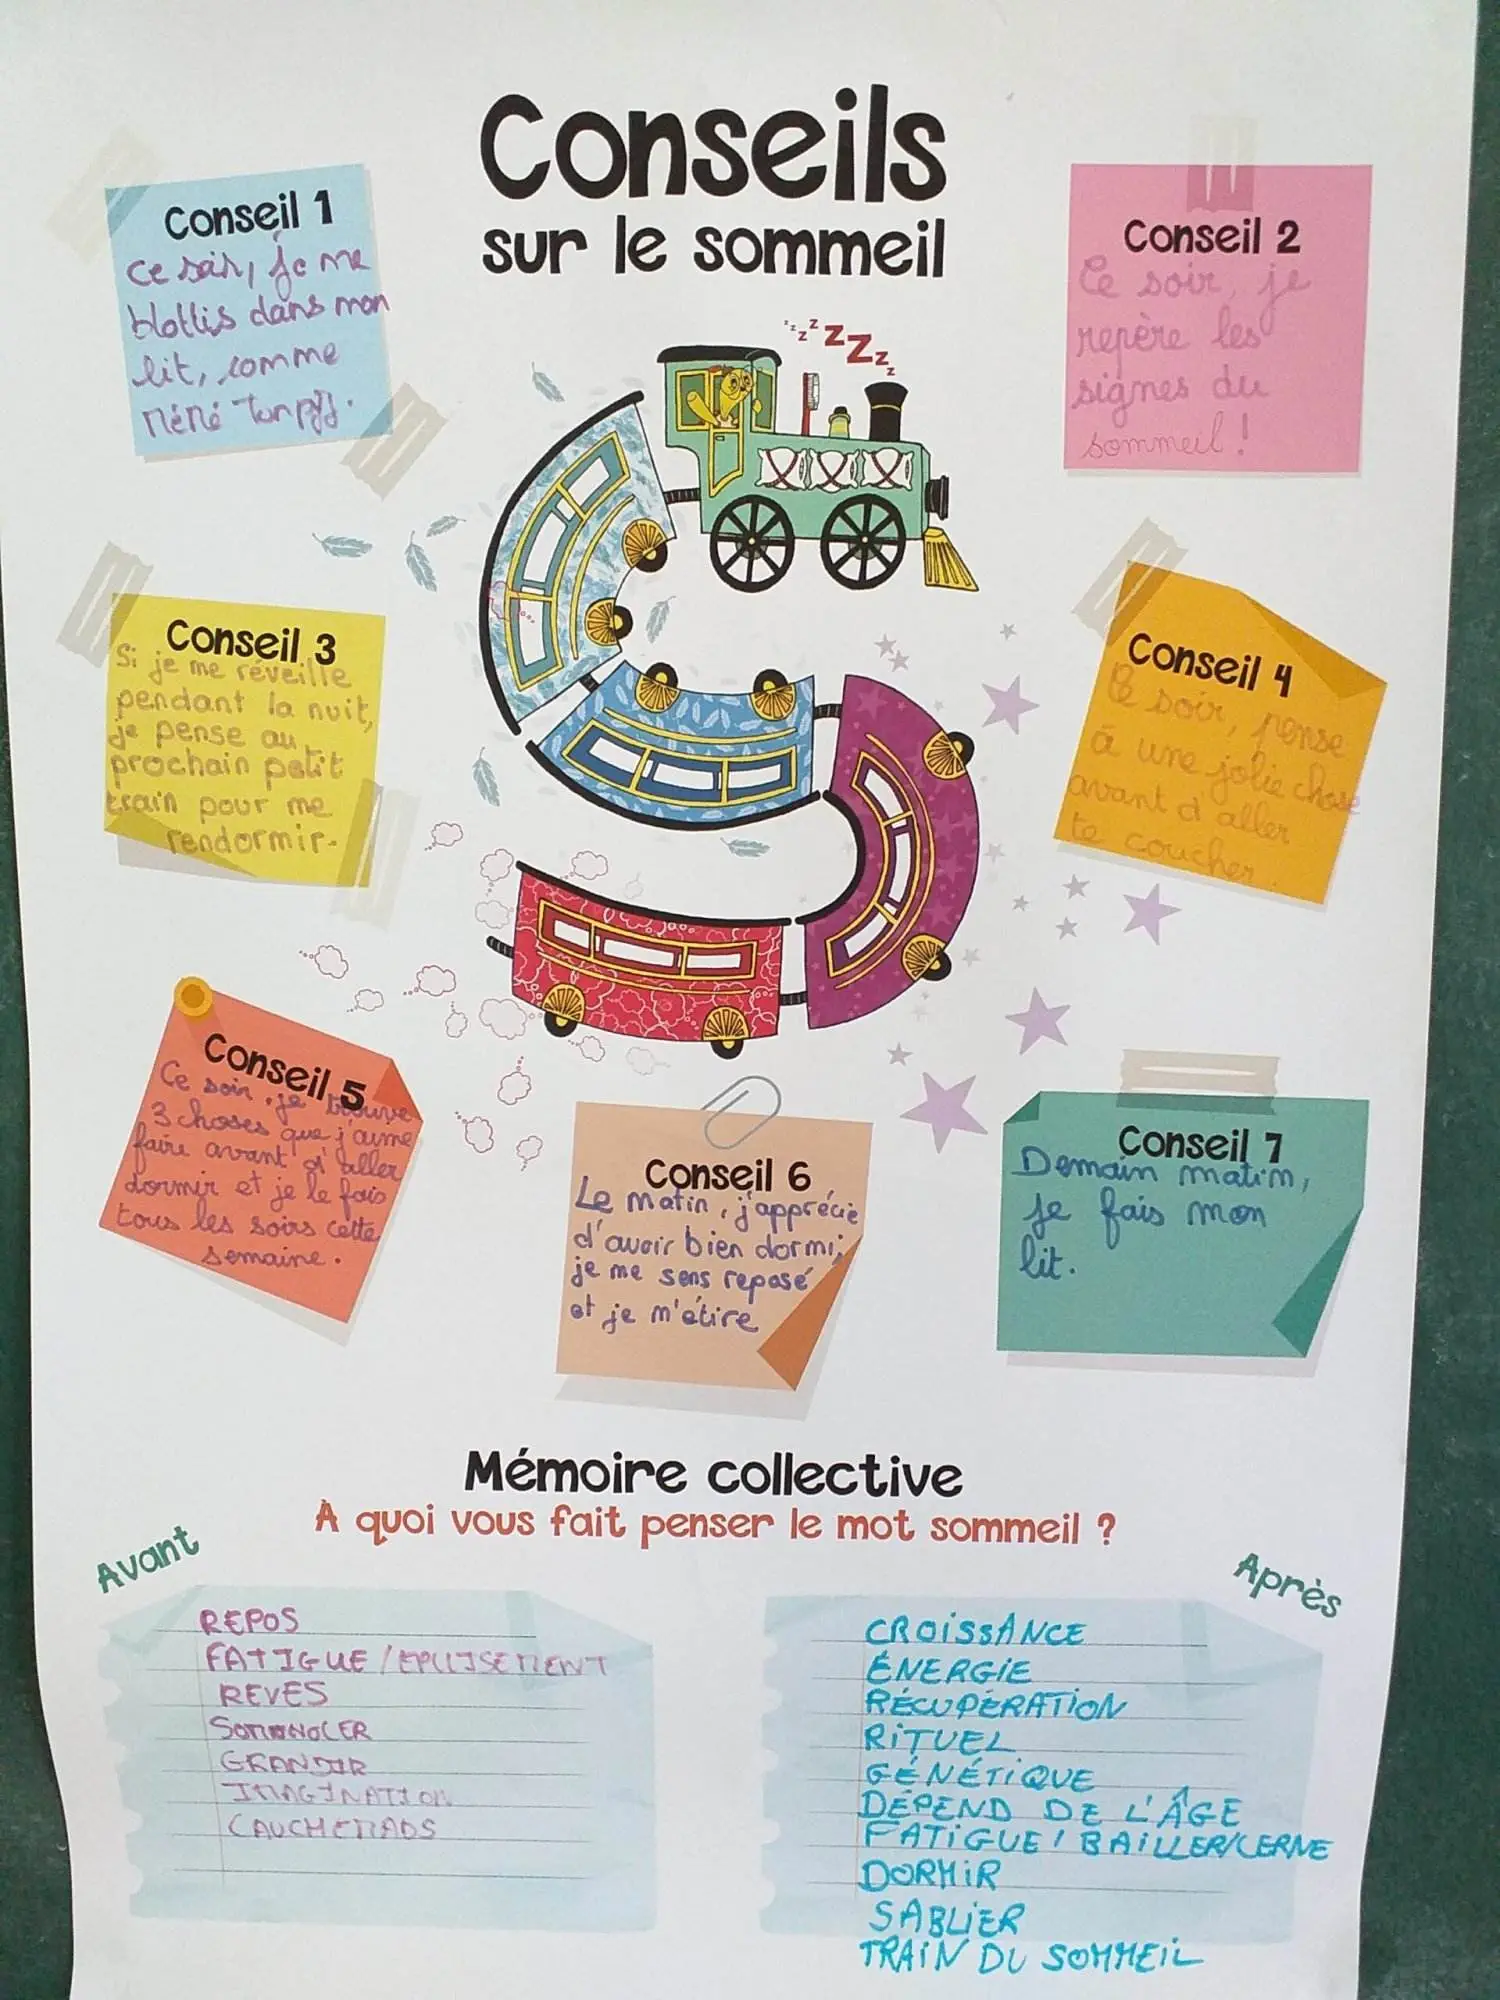 Conseils
sur le sommeil
Conseil 1
Ce soir, je me
blottis dans mon
lit, comme
Néné
Conseil 2
Ce soir, je
repère les
signes du
sommeil !
zzzzZZZzz
Conseil 3
Si je me réveille
pendant la nuit,
je pense au
prochain petit
train pour me
rendormir.
Conseil 4
Ce soir, pense
à une jolie chose
avant d'aller
te coucher.
Conseil 5
Ce soir, je trouve
3 choses que j'aime
faire avant d'aller
dormir et je le fais
tous les soirs cette
semaine.
Conseil 6
Le matin, j'apprécie
d'avoir bien dormi,
je me sens reposé
et je m'étire
Conseil 7
Demain matin,
je fais mon
lit.
Mémoire collective
A quoi vous fait penser le mot sommeil ?
Avant
REPOS
FATIGUE / EPUISEMENT
REVES
SOMNOLER
GRANDIR
IMAGINATION
CAUCHEMARS
Après
CROISSANCE
ÉNERGIE
RÉCUPÉRATION
RITUEL
GÉNÉTIQUE
DÉPEND DE L'ÂGE
FATIGUE / BAILLER/CERNE
DORMIR
SABLIER
TRAIN DU SOMMEIL